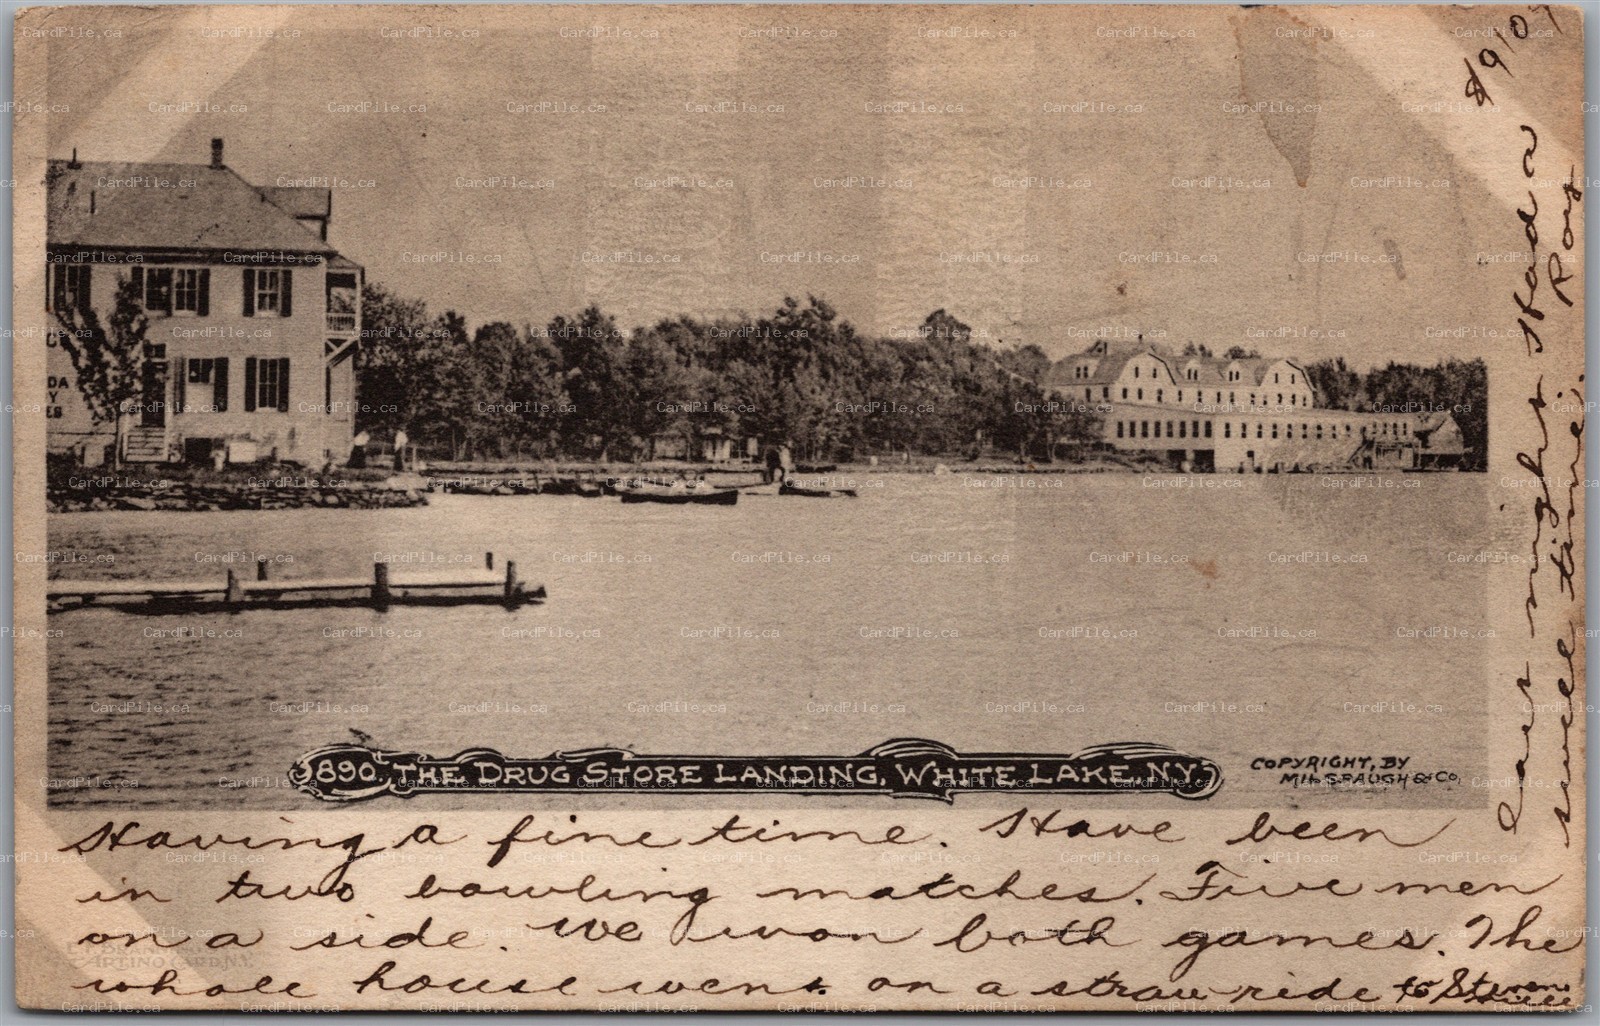 C
DA
Y
ES
890. THE DRUG STORE LANDING, WHITE LAKE, N.Y.
COPYRIGHT, BY
MILSPAUGH & CO.
Having a fine time. Have been
in two bowling matches. Five men
on a side. We won both games. The
whole house went on a straw ride to
last night. Had a
swell time.
Roy
ARTINO CARD N.Y.
CardPile.ca